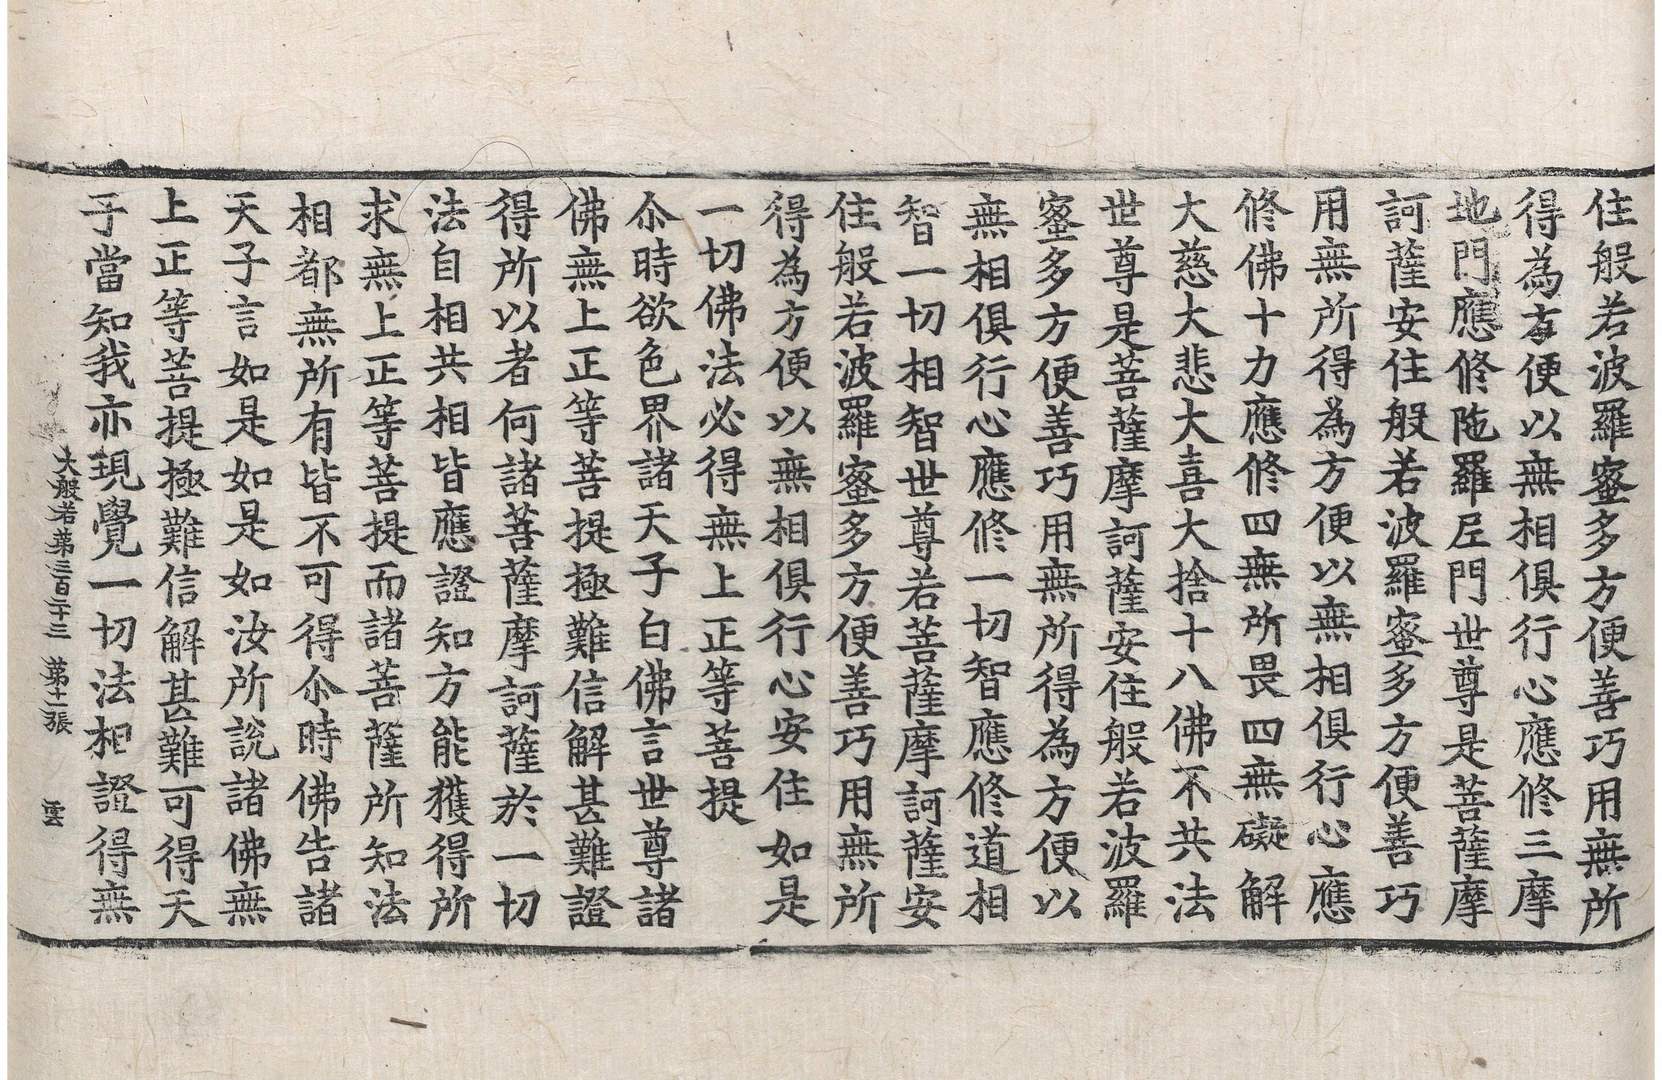 住般若波羅蜜多方便善巧用無所
得為方便以無相俱行心應修三摩
地門應修陁羅尼門世尊是菩薩摩
訶薩安住般若波羅蜜多方便善巧
用無所得為方便以無相俱行心應
修佛十力應修四無所畏四無礙解
大慈大悲大喜大捨十八佛不共法
世尊是菩薩摩訶薩安住般若波羅
蜜多方便善巧用無所得為方便以
無相俱行心應修一切智應修道相
智一切相智世尊若菩薩摩訶薩安
住般若波羅蜜多方便善巧用無所
得為方便以無相俱行心安住如是
一切佛法必得無上正等菩提
尒時欲色界諸天子白佛言世尊諸
佛無上正等菩提極難信解甚難證
得所以者何諸菩薩摩訶薩於一切
法自相共相皆應證知方能獲得所
求無上正等菩提而諸菩薩所知法
相都無所有皆不可得尒時佛告諸
天子言如是如是如汝所說諸佛無
上正等菩提極難信解甚難可得天
子當知我亦現覺一切法相證得無
大般若第三百二十三 第十一張 雲